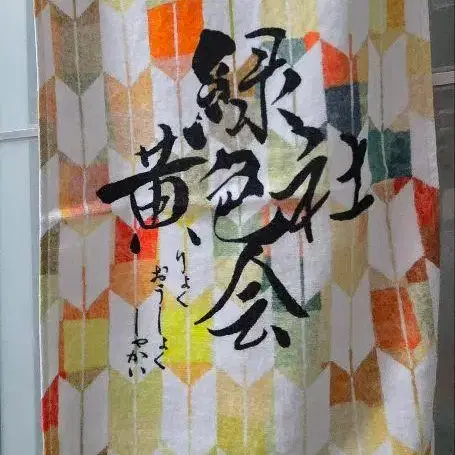 緑
黄色社
会
りょく
おうしょく
しゃかい